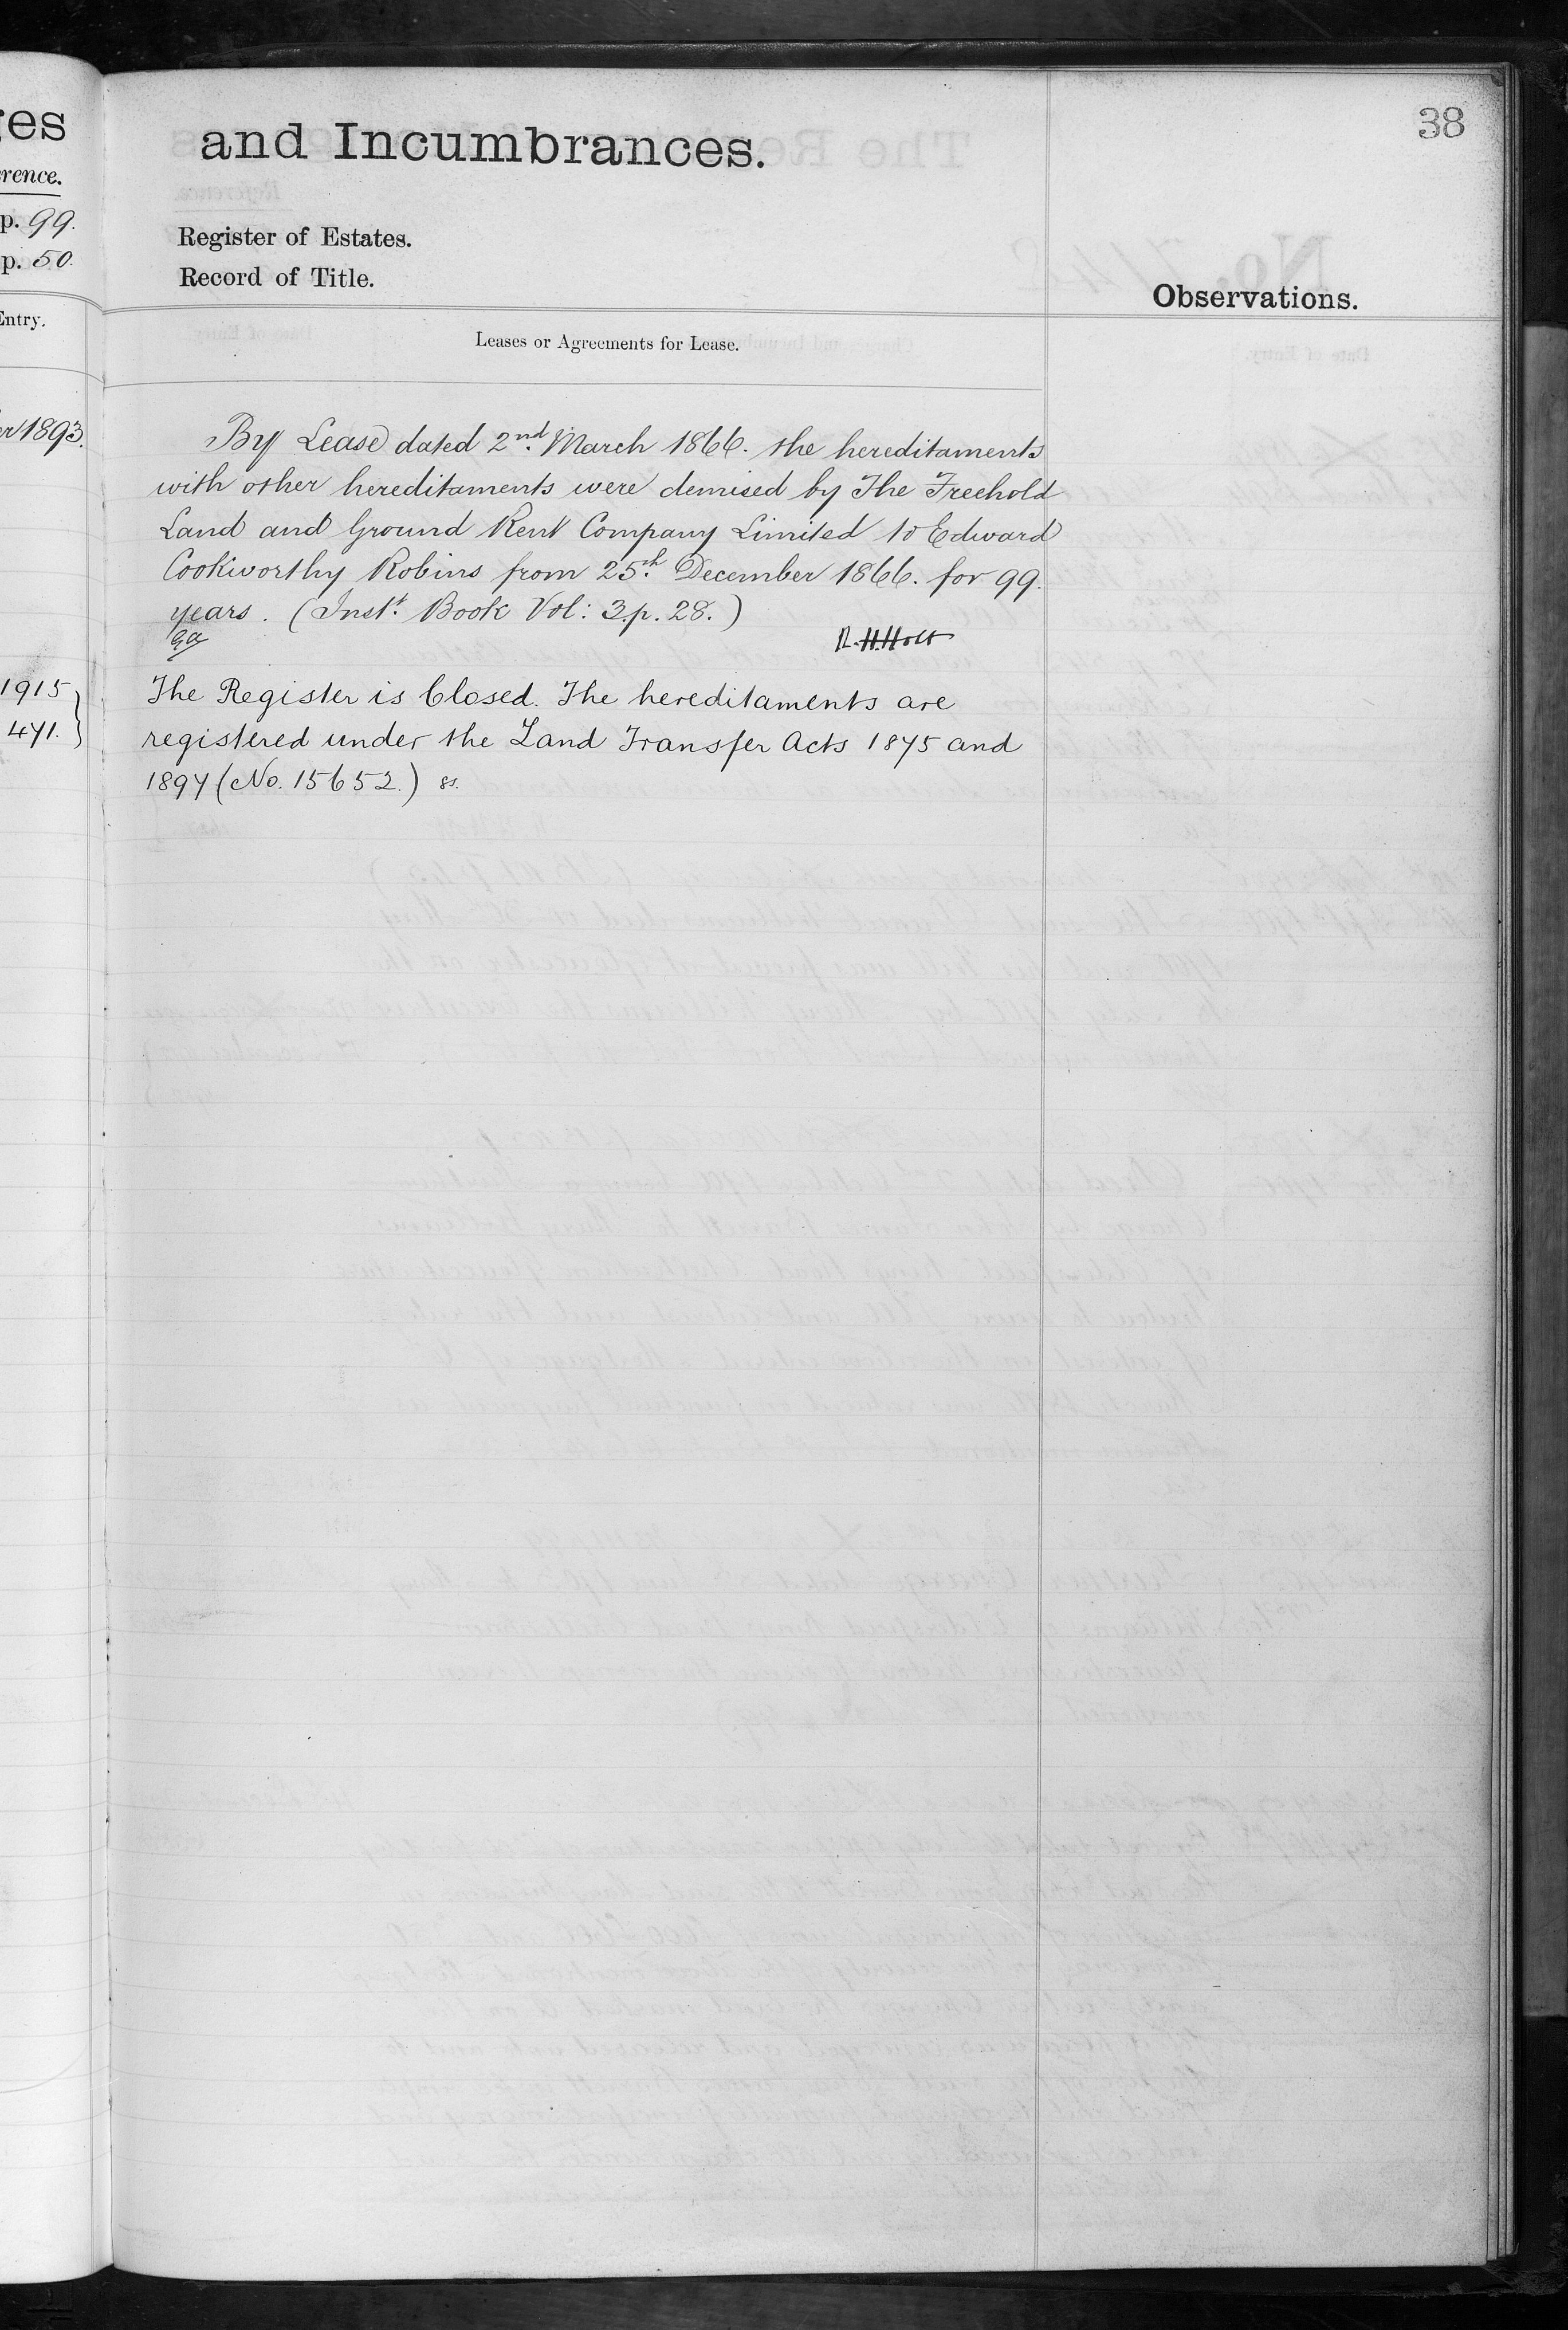 ges
and Incumbrances.
38
erence.
p. 99.
Register of Estates.
p. 50.
Record of Title.
Observations.
Entry.
Leases or Agreements for Lease.
er 1893.
By Lease dated 2nd. March 1866. the hereditaments
with other hereditaments were demised by The Freehold
Land and Ground Rent Company Limited to Edward
Cookworthy Robins from 25th. December 1866. for 99.
years. (Inst. Book Vol: 3. p. 28.)
R. H. Holt
1915
The Register is Closed. The hereditaments are
471.
registered under the Land Transfer Acts 1875 and
1897 (No. 15652.)